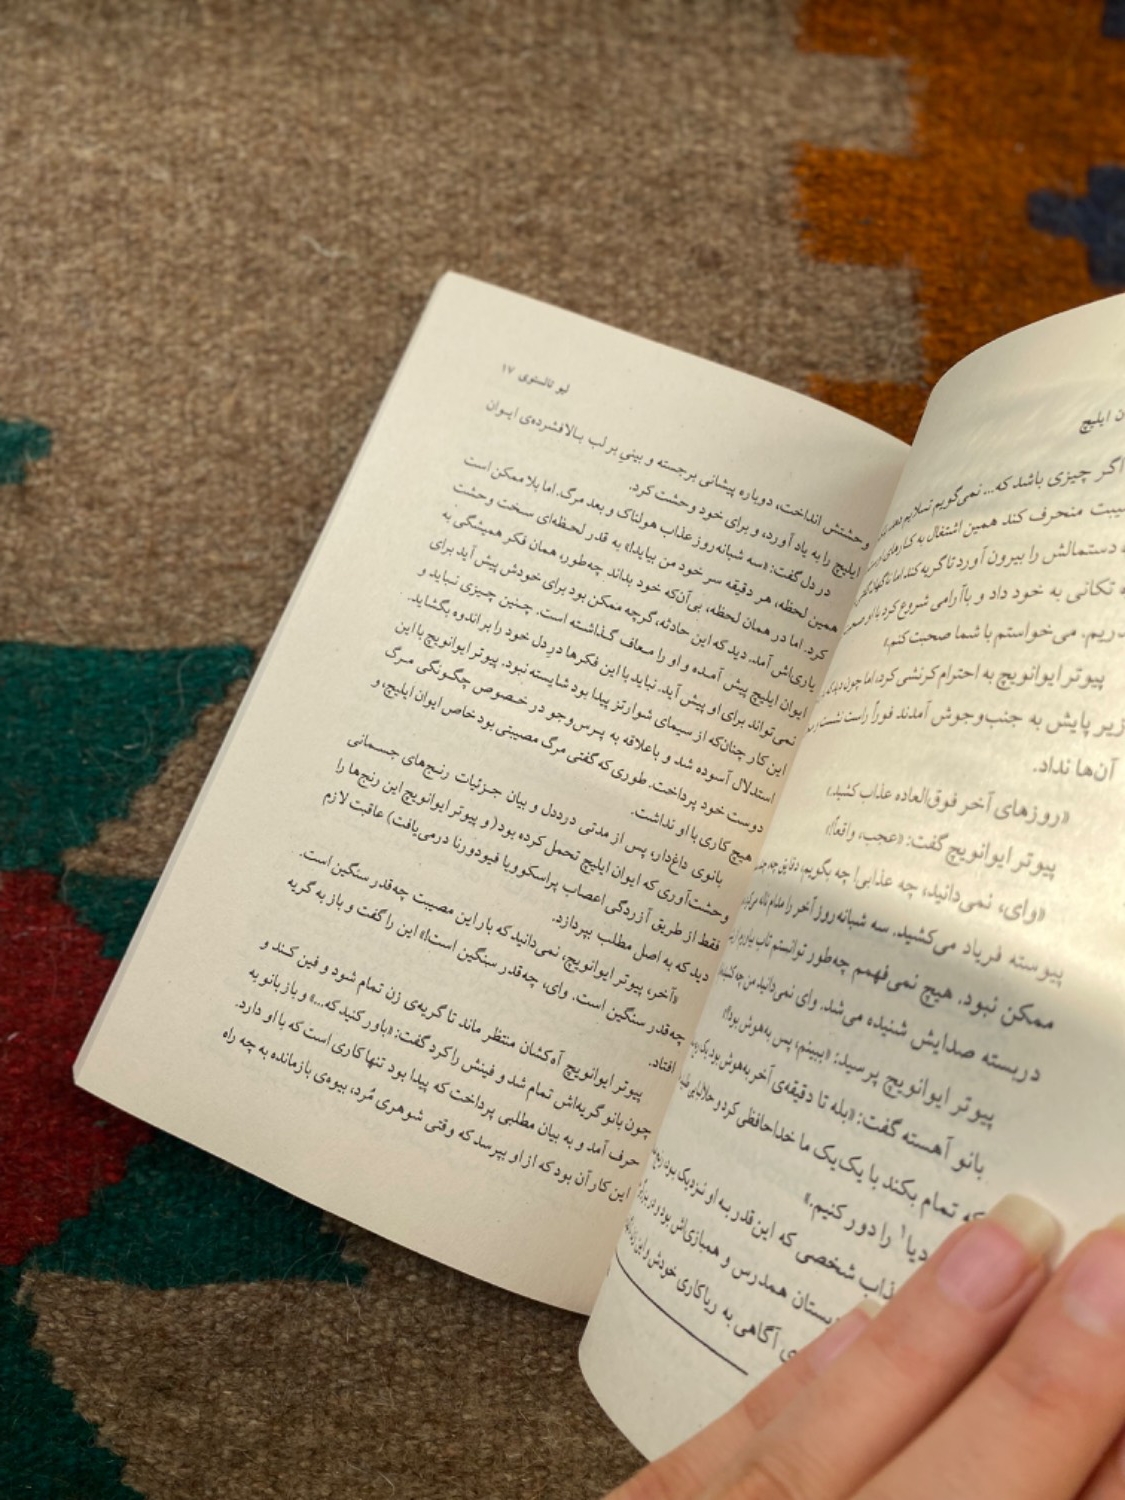 ن ایلیچ
اگر چیزی باشد که... نمی‌گویم تسلایم دهد،
یبت منحرف کند همین اشتغال به کارهای او
دستمالش را بیرون آورد تا گریه کند اما ناگهان
تکانی به خود داد و باآرامی شروع کرد با او صحبت
دریم. می‌خواستم با شما صحبت کنم.»
پیوتر ایوانویچ به احترام کرنشی کرد، اما چون دید که
زیر پایش به جنب‌وجوش آمدند فوراً راست نشست
آن‌ها نداد.
«روزهای آخر فوق‌العاده عذاب کشید.»
پیوتر ایوانویچ گفت: «عجب، واقعاً!»
«وای، نمی‌دانید، چه عذابی! چه بگویم، دقایق چه،
پیوسته فریاد می‌کشید. سه شبانه‌روز آخر را مدام ناله
ممکن نبود. هیچ نمی‌فهمم چه‌طور توانستم تاب بیاورم. از
دربسته صدایش شنیده می‌شد. وای نمی‌دانید من چه
پیوتر ایوانویچ پرسید: «ببینم، پس به‌هوش بود؟»
بانو آهسته گفت: «بله تا دقیقه‌ی آخر به‌هوش بود. یک
که تمام بکند با یک‌یک ما خداحافظی کرد و حلالیت
دیا۱ را دور کنیم.»
ذاب شخصی که این قدر به او نزدیک بود،
بستان همدرس و همبازی‌اش بود و در بزرگ
ی آگاهی به ریاکاری خودش و این زن
لیو تالستوی ۱۷
وحشتش انداخت، دوباره پیشانی برجسته و بینیِ بر لب بالافشرده‌ی ایوان
ایلیچ را به یاد آورد، و برای خود وحشت کرد.
در دل گفت: «سه شبانه‌روز عذاب هولناک و بعد مرگ. اما بلا ممکن است
همین لحظه، هر دقیقه سر خود من بیاید!» به قدر لحظه‌ای سخت وحشت
کرد. اما در همان لحظه، بی‌آن‌که خود بداند چه‌طور، همان فکر همیشگی به
یاری‌اش آمد. دید که این حادثه، گرچه ممکن بود برای خودش پیش آید برای
ایوان ایلیچ پیش آمده و او را معاف گذاشته است. چنین چیزی نباید و
نمی‌تواند برای او پیش آید. نباید با این فکرها درِ دل خود را بر اندوه بگشاید.
این کار چنان‌که از سیمای شوارتز پیدا بود شایسته نبود. پیوتر ایوانویچ با این
استدلال آسوده شد و باعلاقه به پرس‌وجو در خصوص چگونگی مرگ
دوست خود پرداخت. طوری که گفتی مرگ مصیبتی بود خاص ایوان ایلیچ، و
هیچ کاری با او نداشت.
بانوی داغ‌دار، پس از مدتی درددل و بیان جزئیات رنج‌های جسمانی
وحشت‌آوری که ایوان ایلیچ تحمل کرده بود (و پیوتر ایوانویچ این رنج‌ها را
فقط از طریق آزردگی اعصاب پراسکوویا فیودورنا درمی‌یافت) عاقبت لازم
دید که به اصل مطلب بپردازد.
«آخر، پیوتر ایوانویچ، نمی‌دانید که بار این مصیبت چه‌قدر سنگین است.
چه‌قدر سنگین است. وای، چه‌قدر سنگین است!» این را گفت و باز به گریه
افتاد.
پیوتر ایوانویچ آه‌کشان منتظر ماند تا گریه‌ی زن تمام شود و فین کند و
چون بانو گریه‌اش تمام شد و فینش را کرد گفت: «باور کنید که...» و باز بانو به
حرف آمد و به بیان مطلبی پرداخت که پیدا بود تنها کاری است که با او دارد.
این کار آن بود که از او بپرسد که وقتی شوهری مُرد، بیوه‌ی بازمانده به چه راه